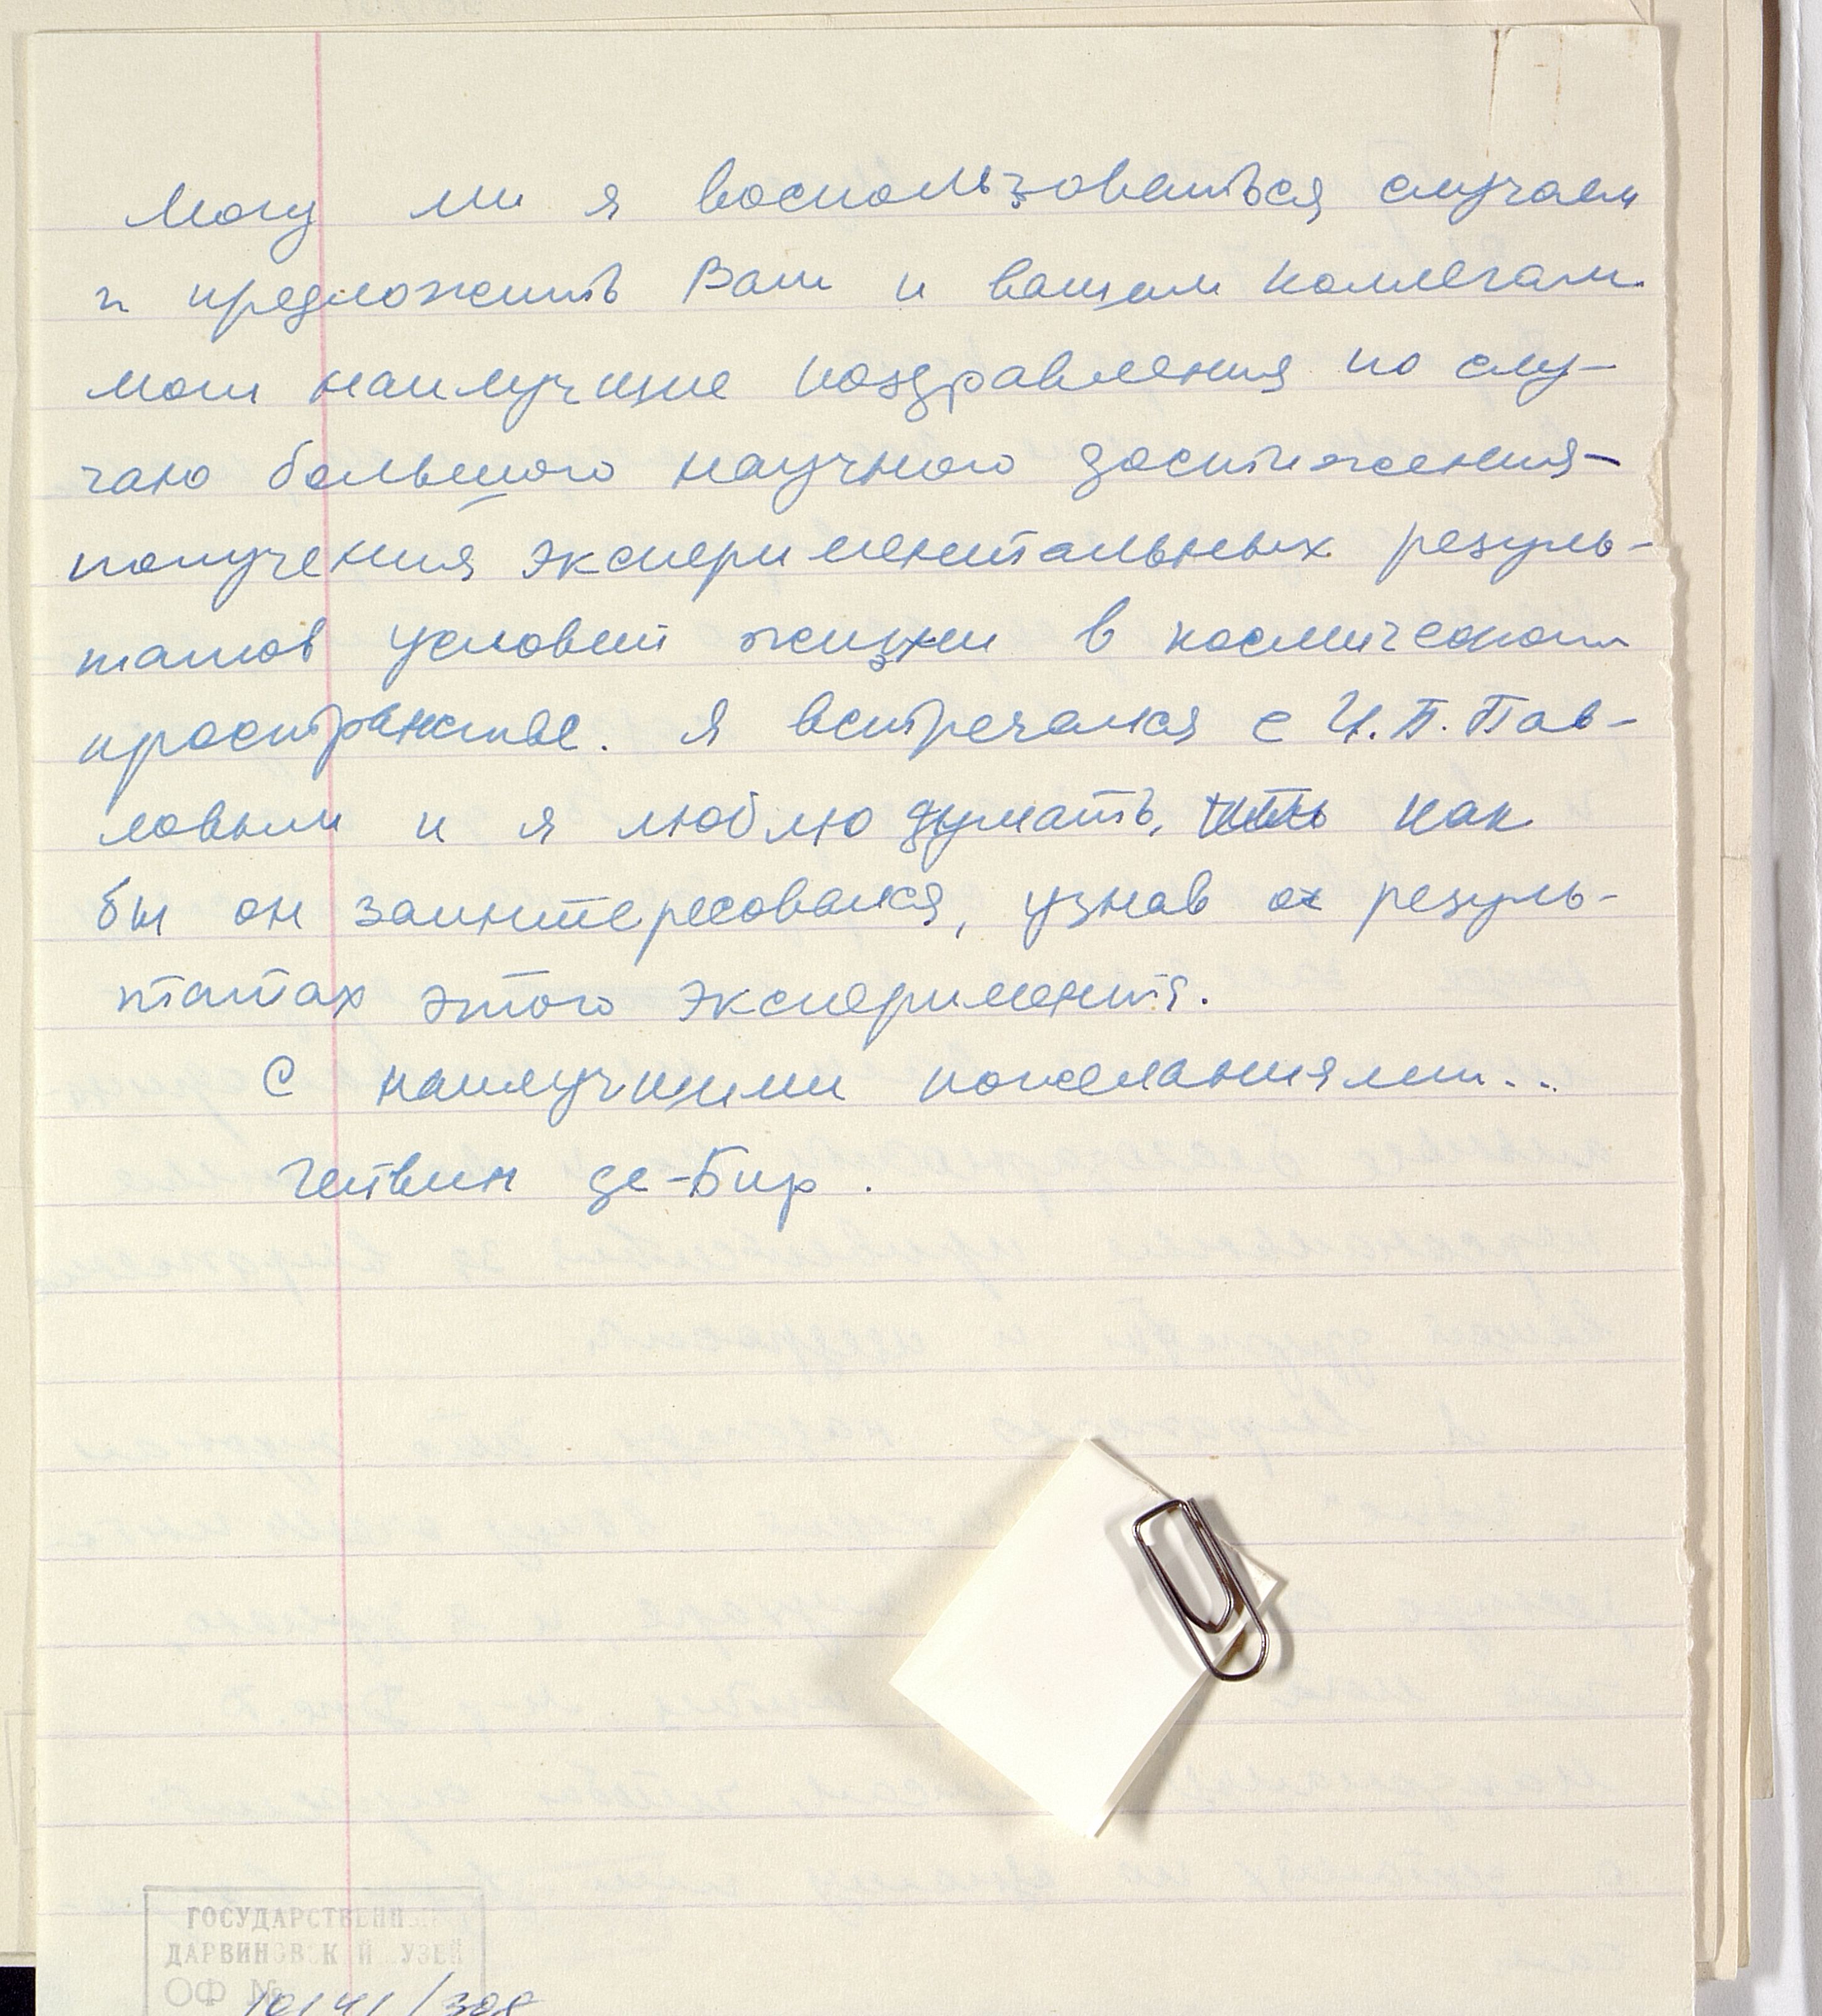 Могу ли я воспользоваться случаем
и предложить Вам и вашим коллегам
мои наилучшие поздравления по слу-
чаю большого научного достижения-
получения экспериментальных резуль-
татов условий жизни в космическом
пространстве. Я встречался с И.П. Пав-
ловым и я люблю думать, как
бы он заинтересовался, узнав о резуль-
татах этого эксперимента.
С наилучшими пожеланиями...
Гейвин де-Бир.
ГОСУДАРСТВЕННЫЙ
ДАРВИНОВСКИЙ МУЗЕЙ
ОФ № 10141/308